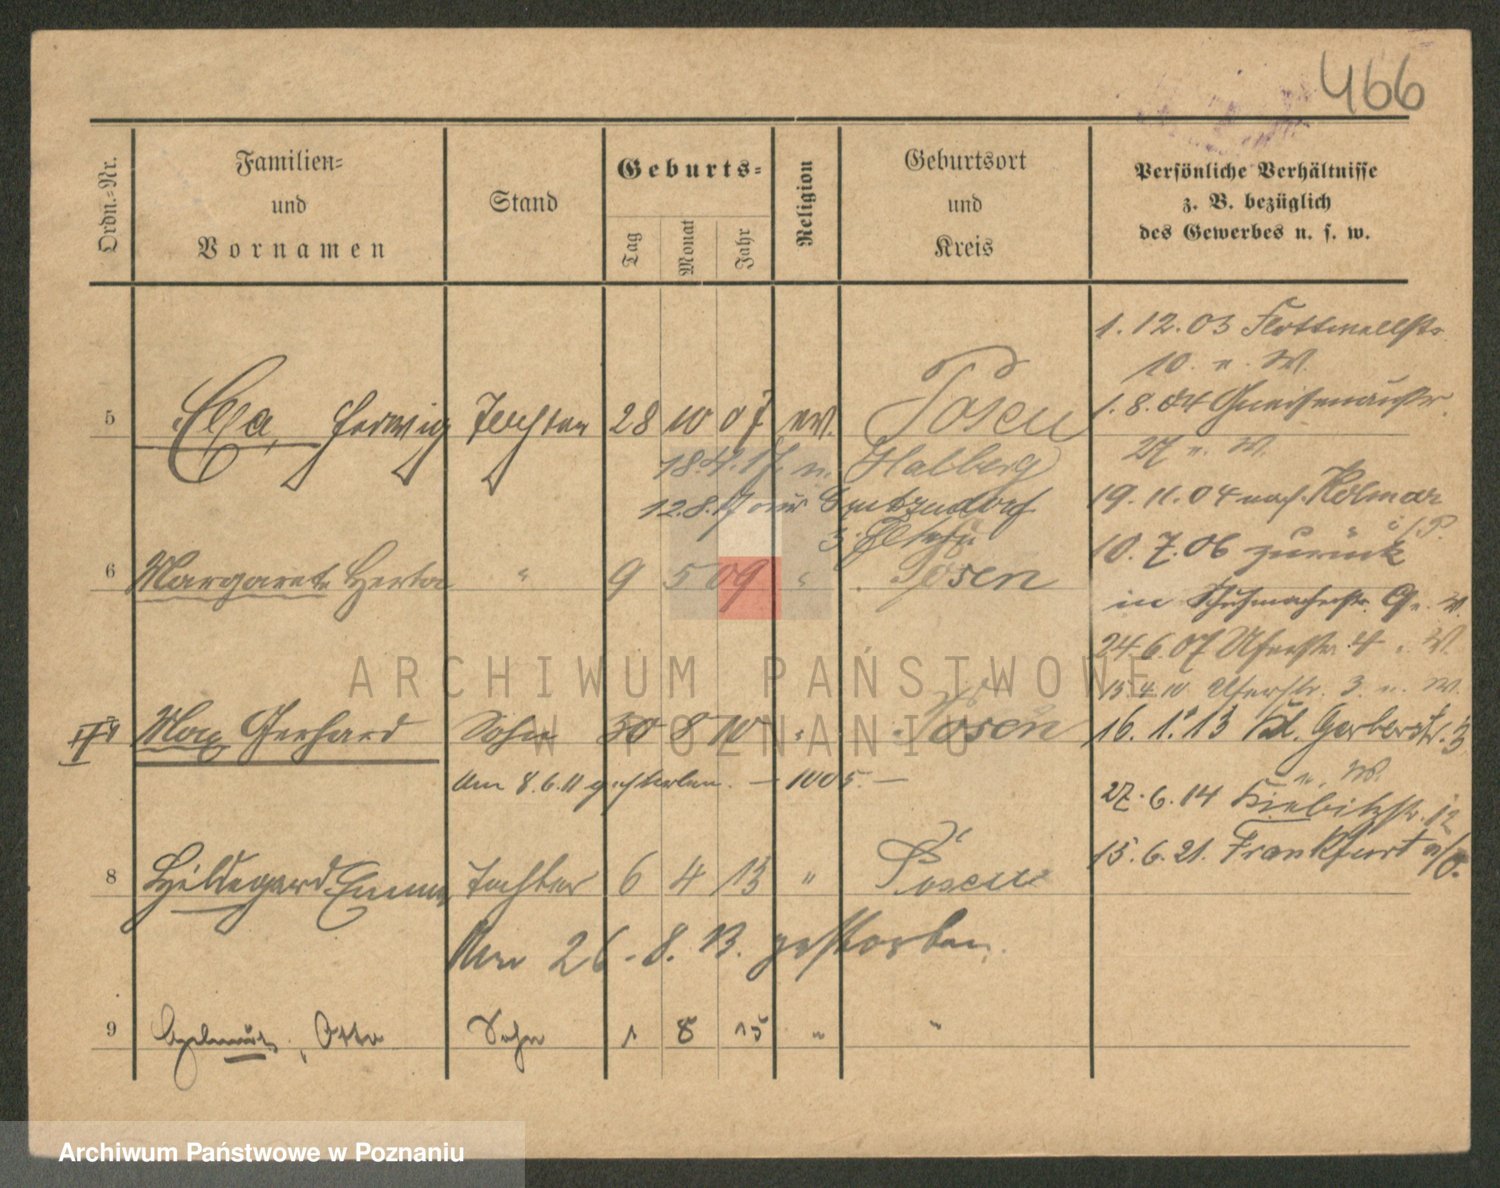 466
Ordn.-Nr.
Familien-
und
Vornamen
Stand
Geburts-
Tag
Monat
Jahr
Religion
Geburtsort
und
Kreis
Persönliche Verhältnisse
z. B. bezüglich
des Gewerbes u. s. w.
5 Ella, Hedwig Tochter 28 10 07 ev. Posen
18.4.17. n. Halberg
12.8.17
6 Margarete Herta " 9 5 09 " Posen
7 Max Gerhard Sohn 30 8 10 " Posen
Am 8.6.11 gestorben. – 1005. –
8 Hildegard Emma Tochter 6 4 13 " Posen
Am 26.8.13. gestorben.
9 Helmut, Otto Sohn 1 8 15 " "
1.12.03 Flottwellstr.
10. n. W.
1.8.04 Gneisenaustr.
27 n. W.
19.11.04 nach Kolmar
i/P.
10.7.06 zurück
in Schuhmacherstr. 9 n. W.
24.6.07 Uferstr. 4 n. W.
15.4.10 Uferstr. 3. n. W.
16.1.13 Kl. Gerberstr. 3
n. W.
27.6.14 Kiebitzstr. 12
15.6.21. Frankfurt a/O.
ARCHIWUM PAŃSTWOWE
W POZNANIU
Archiwum Państwowe w Poznaniu